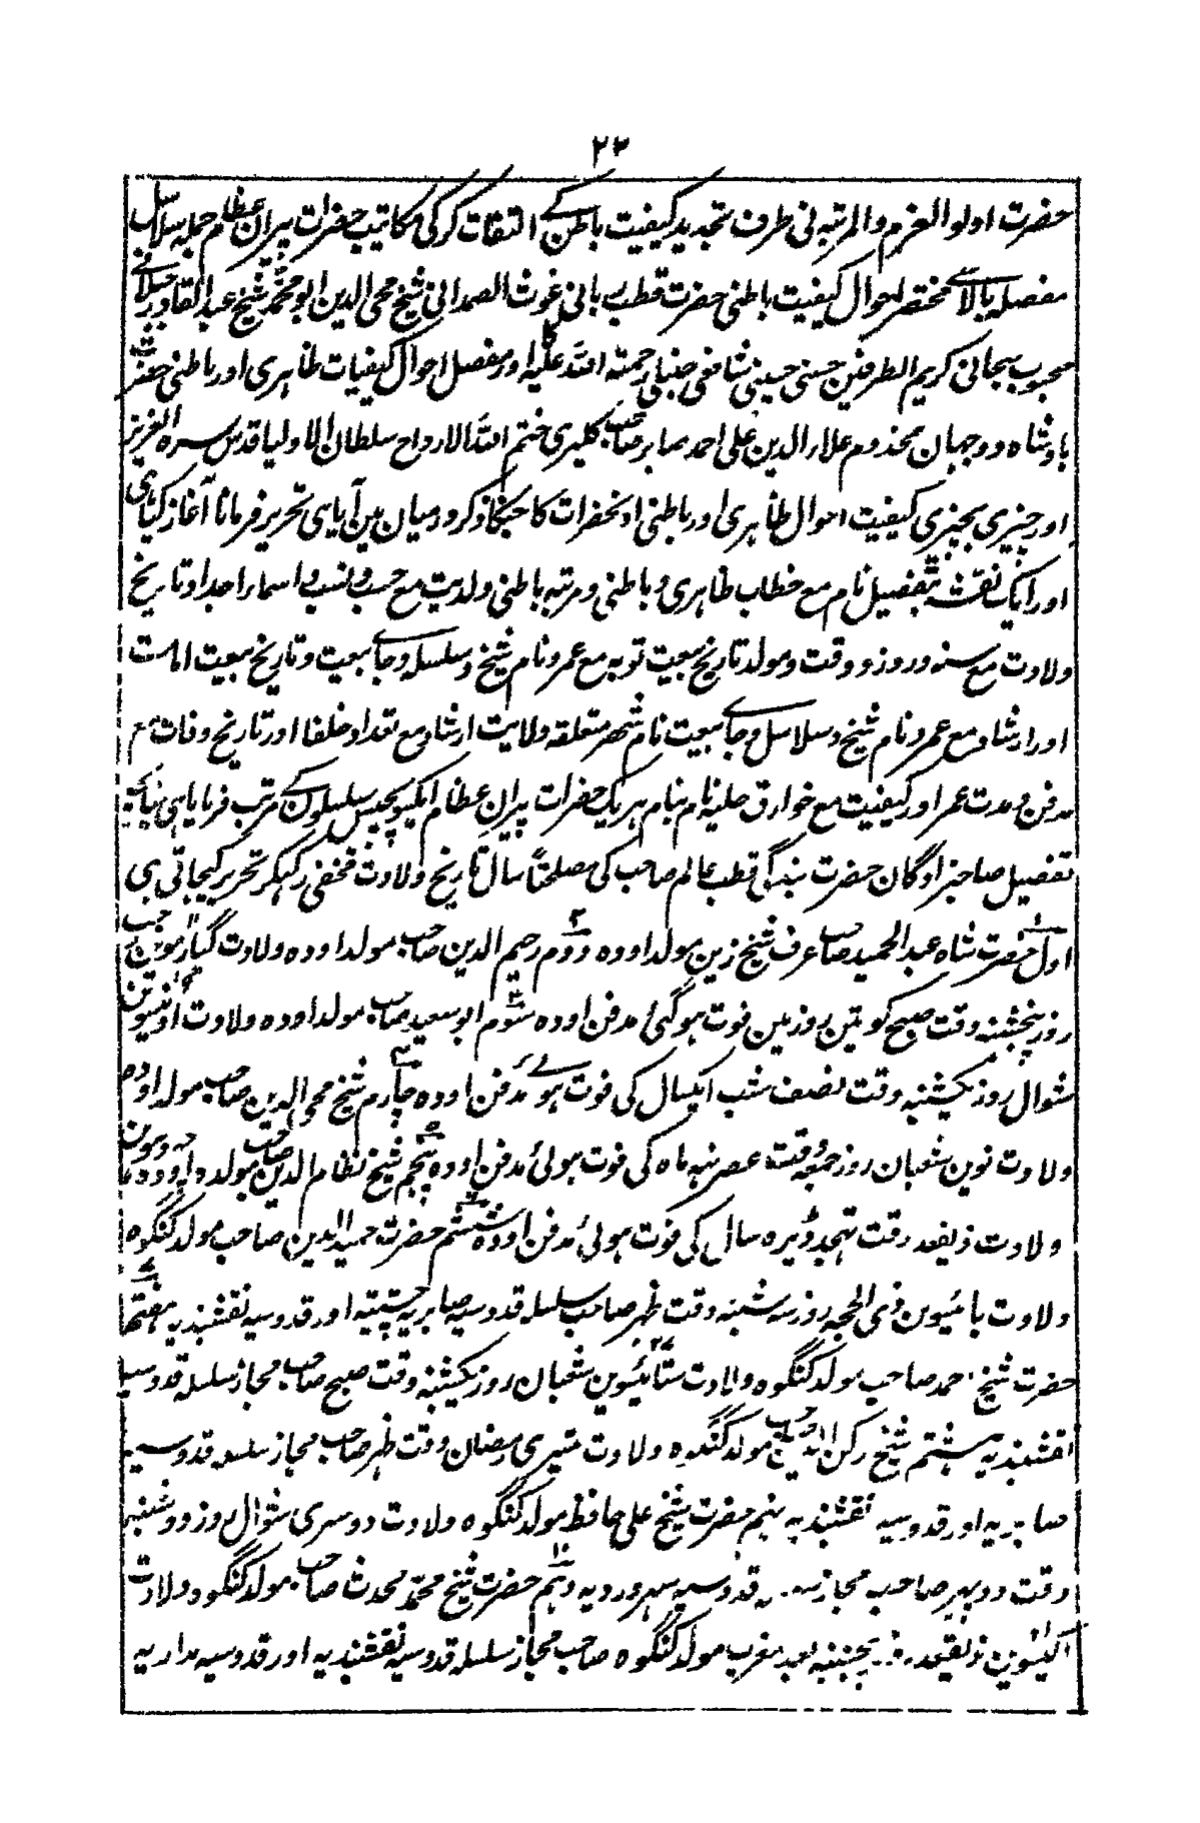 ۲۳
حضرت اولو العزم والمرتبہ نی طرف تجدید کیفیت باطن کے التفات کر کی مکاتیب حضرات پیران عظام جملہ سلاسل
مفصلہ بالا سے مختصر احوال کیفیت باطنی حضرت قطب ربانی غوث الصمدانی شیخ محی الدین ابو محمد شیخ عبد القادر جیلانی
محبوب سبحانی کریم الطرفین حسنی حسینی شافعی حنبلی رحمتہ اللہ علیہ اور مفصل احوال کیفیات ظاہری اور باطنی حضرت
بادشاہ دو جہان مخدوم علاء الدین علی احمد صابر صاحب کلیری ختم اللہ الارواح سلطان الاولیا قدس سرہ العزیز
اور چیزی بچیزی کیفیت احوال ظاہری اور باطنی اونحضرات کا جنکا ذکر درمیان مین آیا ہی تحریر فرمانا آغاز کیا ہی
اور ایک نقشہ بتفصیل نام مع خطاب ظاہری و باطنی و مرتبہ باطنی ولدیت مع حسب و نسب و اسماء اجداد و تاریخ
ولادت مع سنہ و روز و وقت و مولد تاریخ بیعت توبہ مع عمر و نام شیخ و سلسلہ و جاے بیعت و تاریخ بیعت امامت
اور ارشاد مع عمر و نام شیخ و سلاسل و جاے بیعت نام شہر متعلقہ ولایت ارشاد مع تعداد خلفا اور تاریخ وفات مع
مدفن و مدت عمر اور کیفیت مع خوارق حلیہ نام بنام ہر یک حضرات پیران عظام ایکسو پچیس سلسلون کے مرتب فرمایا ہی
تفصیل صاحبزادگان حضرت بندگی قطب عالم صاحب کی مصلحتاً سال تاریخ ولادت مخفی رکہکر تحریر کیجاتی ہی
اول حضرت شاہ عبد الحمید صاحب عرف شیخ زین مولد اودہ دوم رحیم الدین صاحب مولد اودہ ولادت گیارہوین رجب
روز پنجشنبہ وقت صبح کو تین روز مین فوت ہو گئی مدفن اودہ سوم ابو سعید صاحب مولد اودہ ولادت اونتیسوین
شوال روز یکشنبہ وقت نصف شب ایکسال کی فوت ہوے مدفن اودہ چہارم شیخ محی الدین صاحب مولد اودہ
ولادت نوین شعبان روز جمعہ وقت عصر نہ ماہ کی فوت ہوئی مدفن اودہ پنجم شیخ نظام الدین صاحب مولد اودہ
ولادت ذیقعد وقت تہجد ڈیرہ سال کی فوت ہوئی مدفن اودہ ششم حضرت حمید الدین صاحب مولد گنگوہ
ولادت بائیسوین ذی الحجہ روز سہ شنبہ وقت ظہر صاحب سلسلہ قدوسیہ صابریہ چشتیہ اور قدوسیہ نقشبندیہ ہفتم
حضرت شیخ احمد صاحب مولد گنگوہ ولادت ستائیسوین شعبان روز یکشنبہ وقت صبح صاحب مجاز سلسلہ قدوسیہ
نقشبندیہ ہشتم شیخ رکن الدین صاحب مولد گنگوہ ولادت تیسری رمضان وقت ظہر صاحب مجاز سلسلہ قدوسیہ
صابریہ اور قدوسیہ نقشبندیہ نہم حضرت شیخ علی حافظ مولد گنگوہ ولادت دوسری شوال روز دوشنبہ
وقت دوپہر صاحب مجاز قدوسیہ سہروردیہ دہم حضرت شیخ محمد محدث صاحب مولد گنگوہ ولادت
اکیسوین ذیقعدہ پنجشنبہ بعد مغرب مولد گنگوہ صاحب مجاز سلسلہ قدوسیہ نقشبندیہ اور قدوسیہ مداریہ